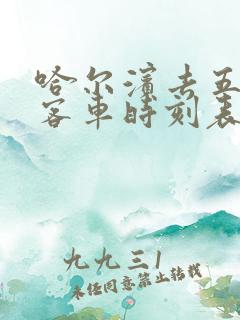 哈尔滨去五
客车时刻表
九九三1
未经同意禁止转载